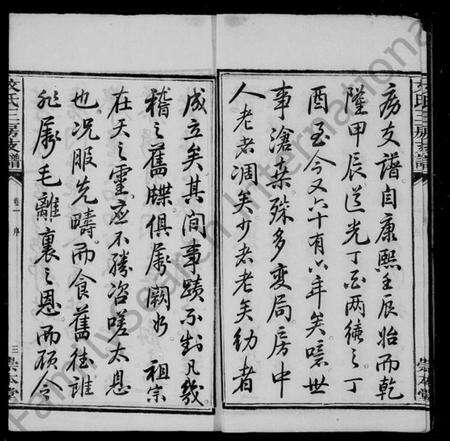 房支譜自康熙壬辰始而乾
隆甲辰道光丁酉兩續之丁
酉至今又六十有六年矣噫世
事滄桑殊多變局房中
人老者凋矣少者老矣幼者
成立矣其間事蹟不對凡幾
稽之舊牒俱屬闕如 祖宗
在天之靈應不勝咨嗟太息
也况服先疇而食舊德誰
非屬毛離裏之恩而顧令
文氏三房支譜
卷一 序
三
崇本堂
FamilySearch International